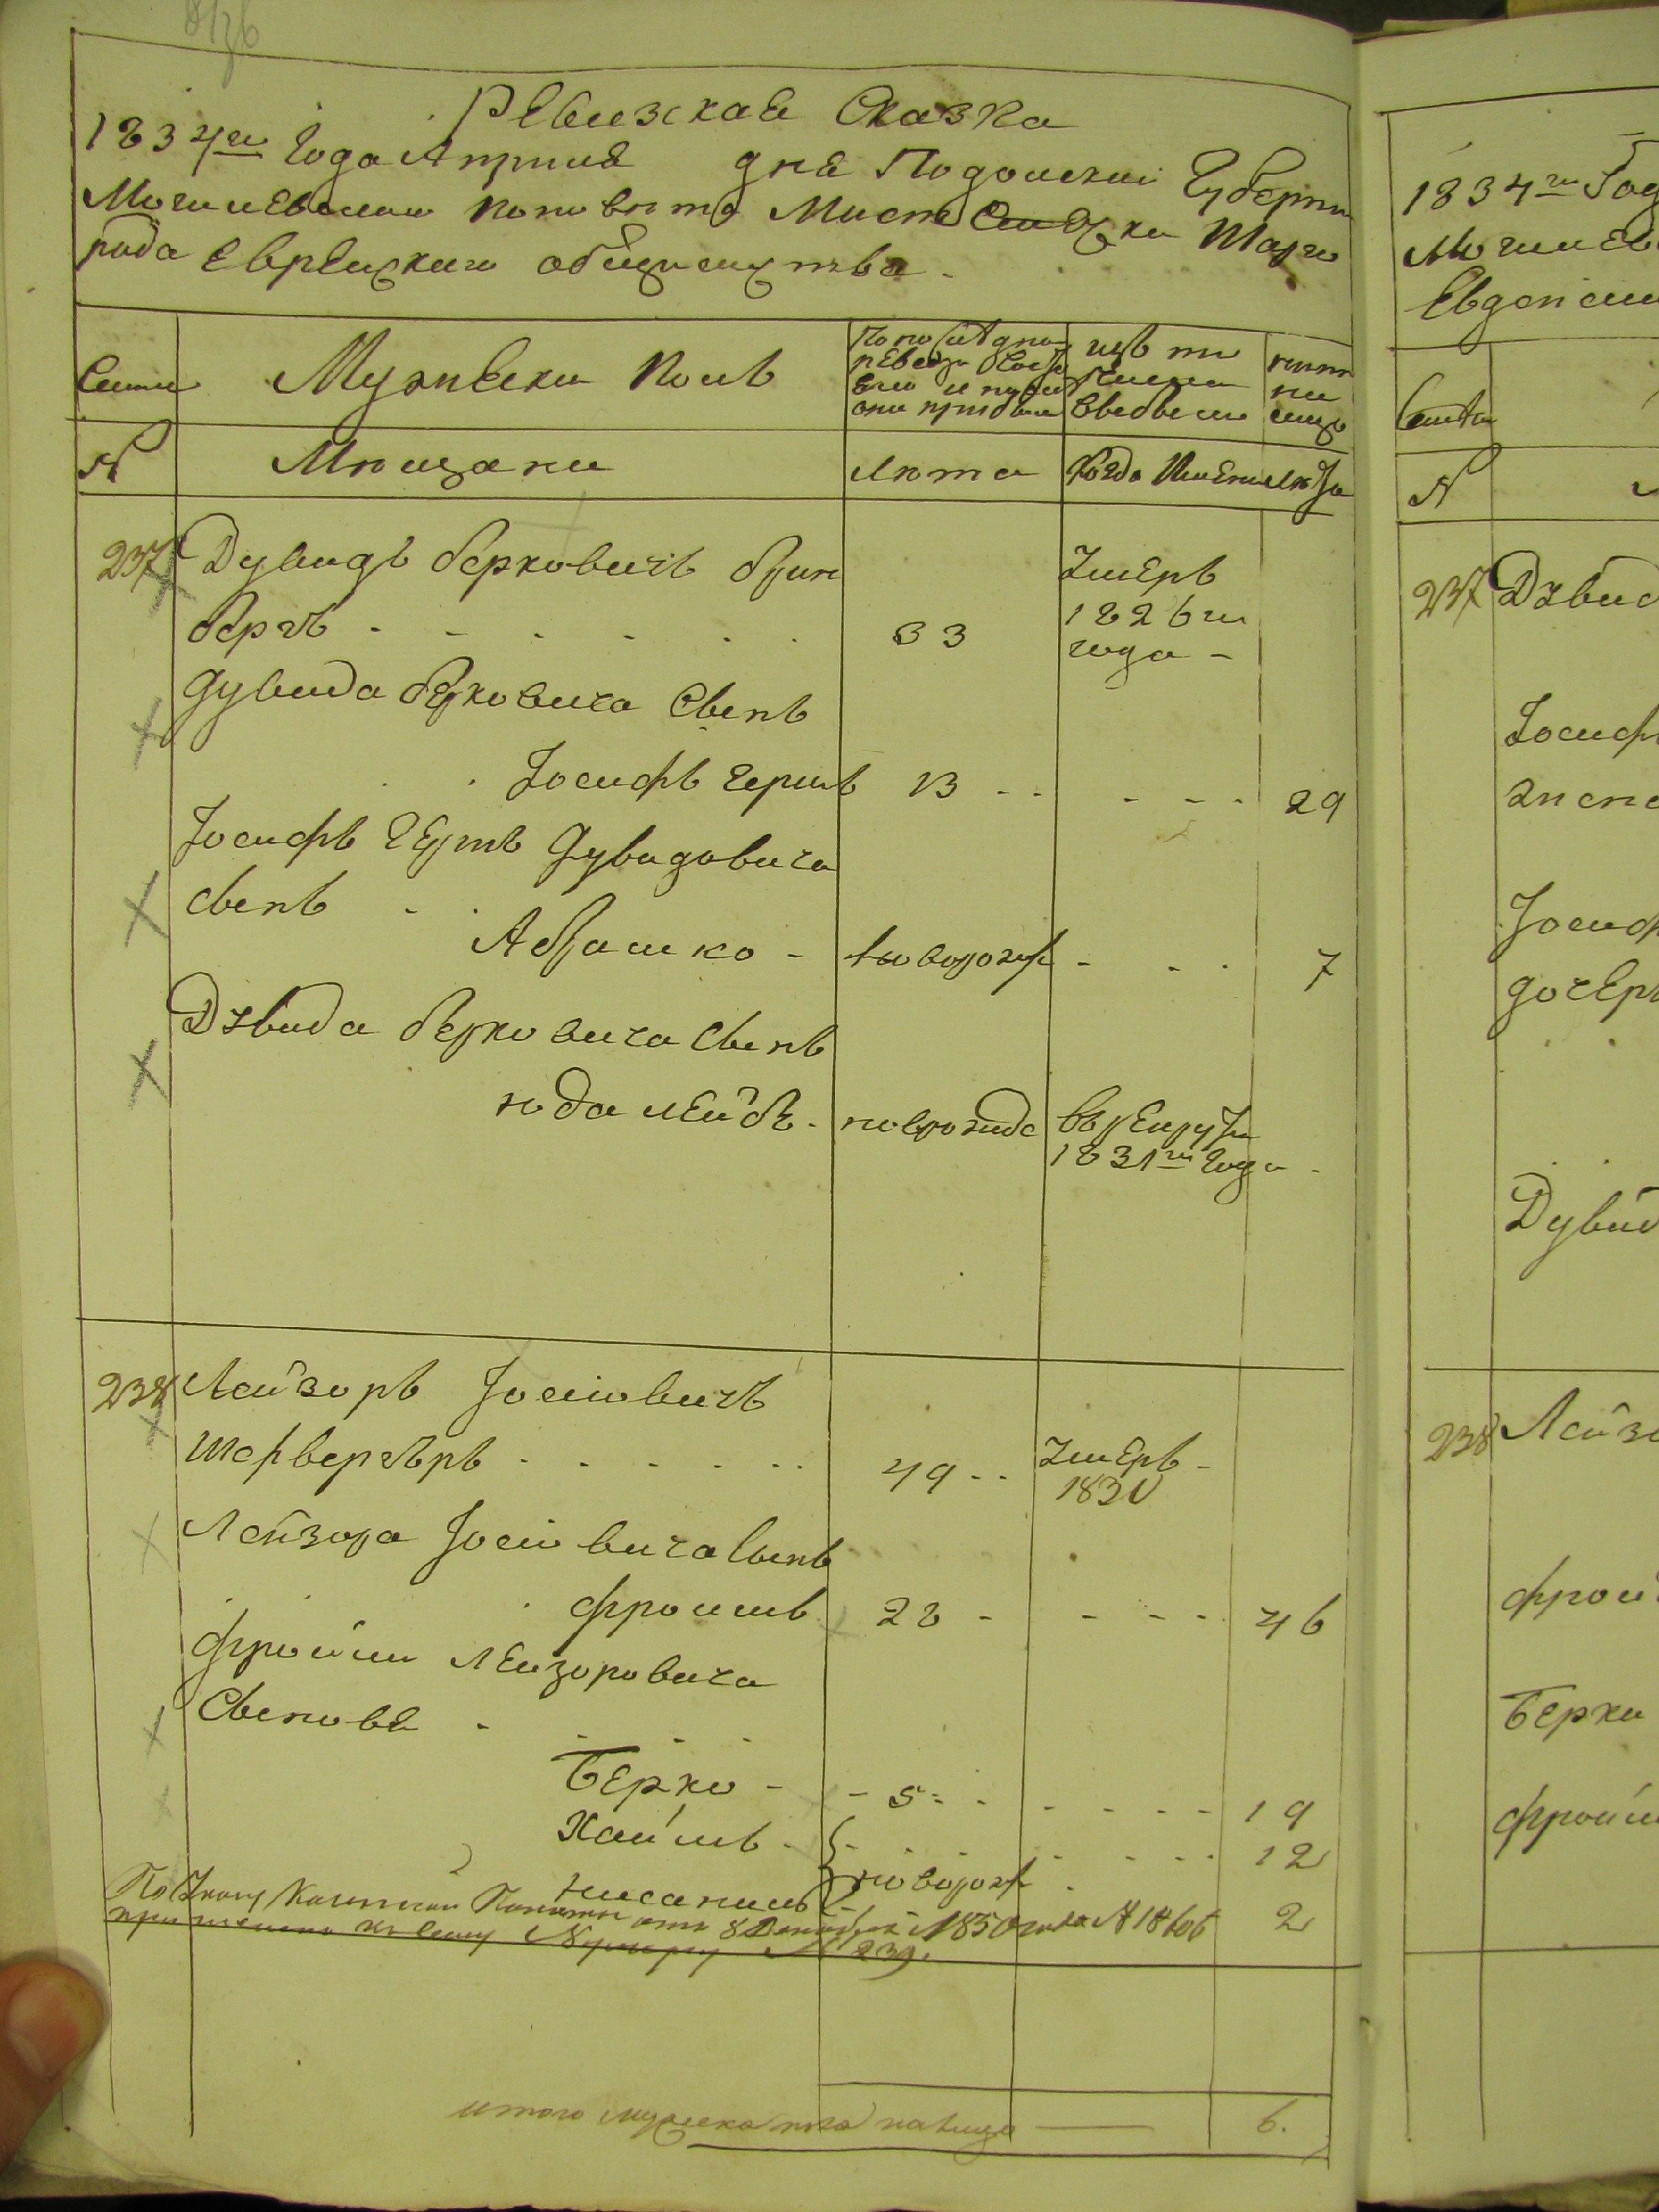 Ревизская Сказка
1834го Года Априля дня Подольской Губернии
Могилевского повета Местечка Шарго
рода Еврейского общества
Семьи Мужеска полъ По последней ревизии состояло и после они прибыли изъ того числа выбыло ныне на лицо
N Мещане лета когда именно лета
237 Дувидъ берковичъ брин
бергъ 33 Умеръ
1826го
года
Дувида берковича Сынъ
Іосифъ гершъ 13 29
Іосифъ гершъ Дувидовича
сынъ
Абрашко новорожд 7
Дувида берковича Сынъ
юда лейбъ новорожде въ рекруты
1831го Года
238 Лейзоръ Іосіовичъ
Шарвергеръ 49 Умеръ
1830
Лейзора Іосіовича Сынъ
фроимъ 28 46
фроима Лейзоровича
Сыновья
Берко 5 19
Хаимъ 12
новорож 2
По Указу Казенной Палаты отъ 8 Декабря 1850 года N 18606
N 239.
итого мужеска пола налицо 6.
1834го Год
Могилев
Еврейск
Семьи
N
237 Дувид
Іосиф
Іосиф
дочерь
Дувид
238 Лейзо
фрои
Берки
фроим